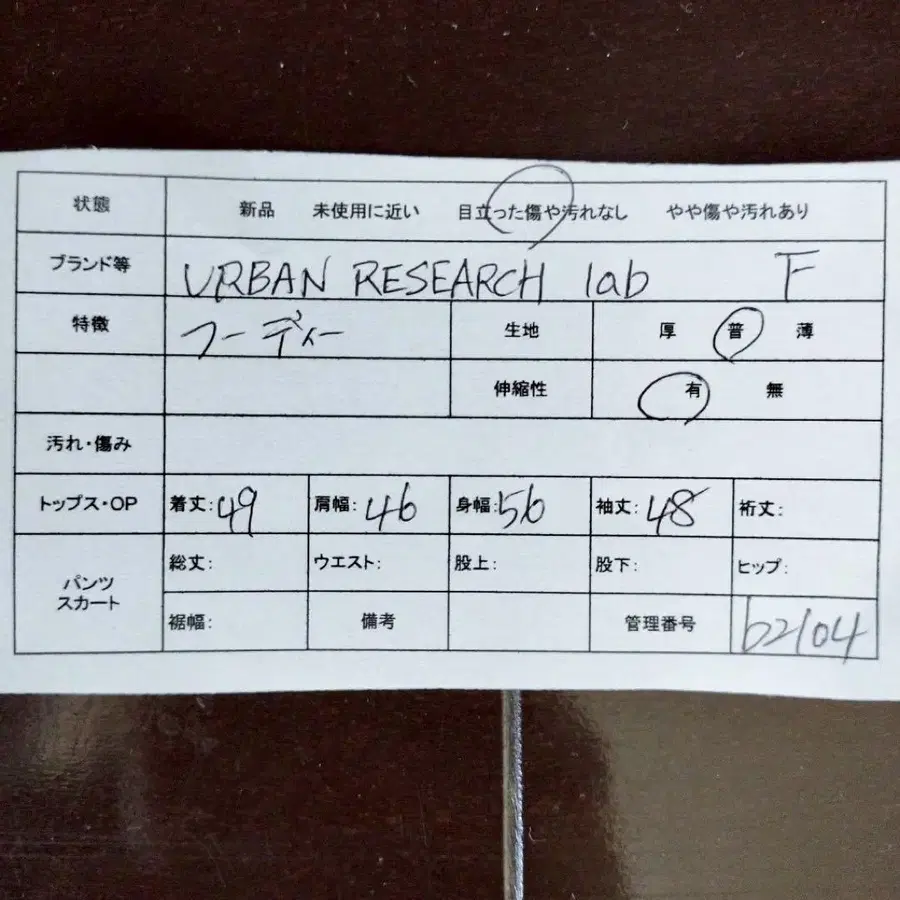 状態 新品 未使用に近い 目立った傷や汚れなし やや傷や汚れあり
ブランド等 URBAN RESEARCH lab F
特徴 フーディー 生地 厚 普 薄
伸縮性 有 無
汚れ・傷み
トップス・OP 着丈:49 肩幅:46 身幅:56 袖丈:48 裄丈:
パンツ スカート 総丈: ウエスト: 股上: 股下: ヒップ:
裾幅: 備考 管理番号 62104